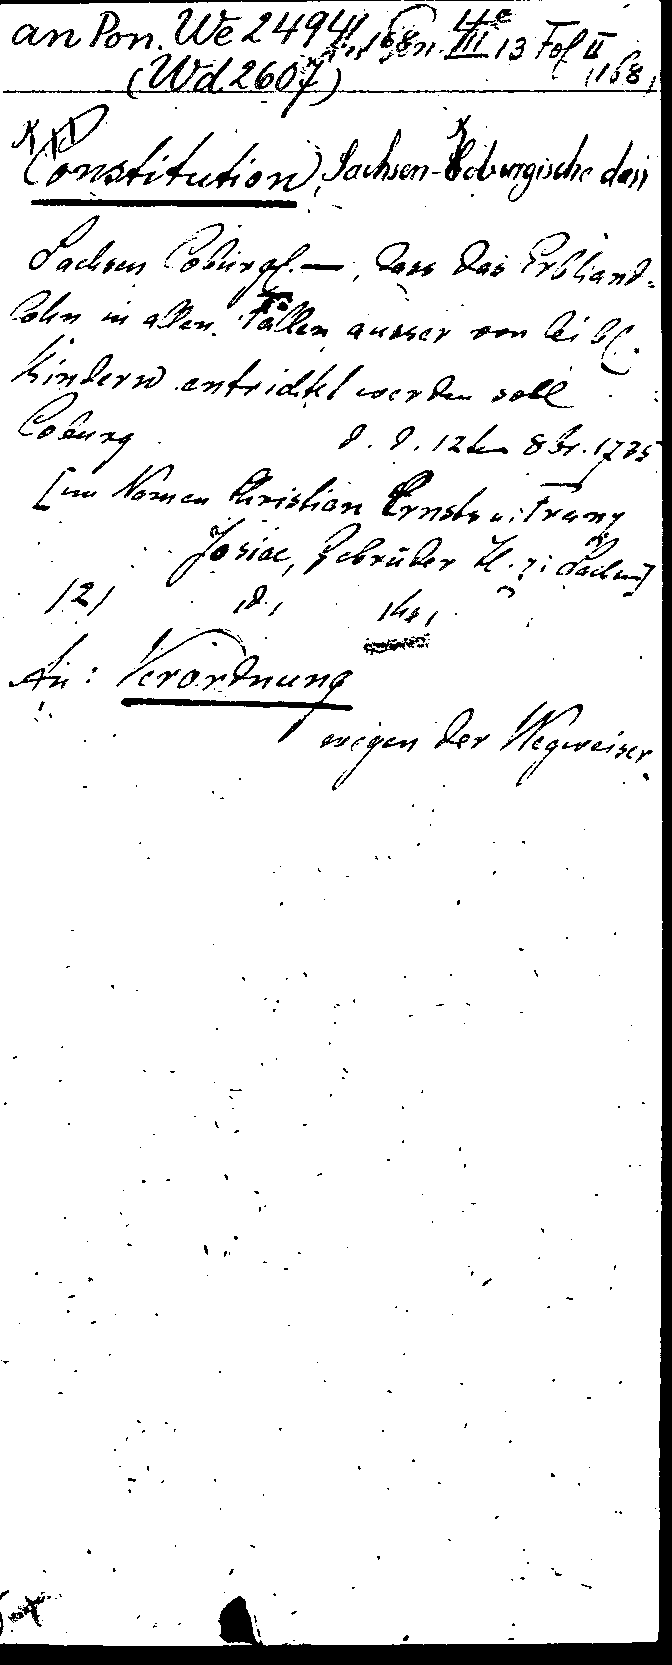 an Pon. We 2494, III 13 Fol II
(Wd 2607) (168)
Constitution, Sachsen-Coburgische dass
Sachsen Coburgl. —, dass das Erbhand-
lohn in allen Fällen ausser von leibl.
Kindern entrichtet werden soll
Coburg d. d. 12ten 8br. 1735
[im Namen Christian Ernsts u. Franz
Josiae, Gebrüder H. z. Sachsen]
/2/
An: Verordnung
wegen der Wegweiser.